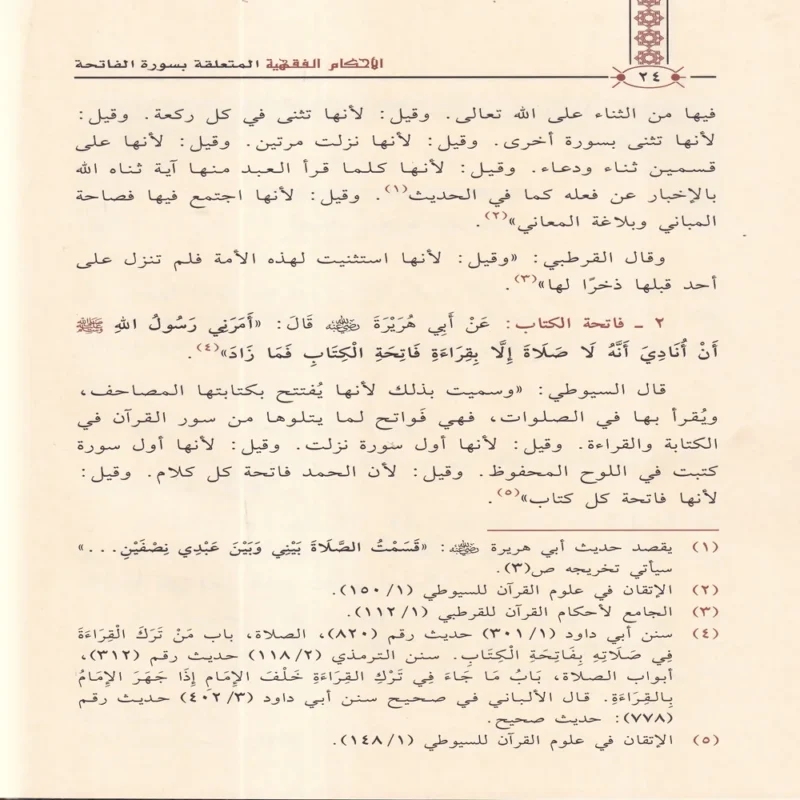 الأحكام الفقهية المتعلقة بسورة الفاتحة
٢٤
فيها من الثناء على الله تعالى. وقيل: لأنها تثنى في كل ركعة. وقيل:
لأنها تثنى بسورة أخرى. وقيل: لأنها نزلت مرتين. وقيل: لأنها على
قسمين ثناء ودعاء. وقيل: لأنها كلما قرأ العبد منها آية ثناه الله
بالإخبار عن فعله كما في الحديث(١). وقيل: لأنها اجتمع فيها فصاحة
المباني وبلاغة المعاني»(٢).
وقال القرطبي: «وقيل: لأنها استثنيت لهذه الأمة فلم تنزل على
أحد قبلها ذخرًا لها»(٣).
٢ ـ فاتحة الكتاب: عَنْ أَبِي هُرَيْرَةَ رضي الله عنه قَالَ: «أَمَرَنِي رَسُولُ اللهِ ﷺ
أَنْ أُنَادِيَ أَنَّهُ لَا صَلَاةَ إِلَّا بِقِرَاءَةِ فَاتِحَةِ الْكِتَابِ فَمَا زَادَ»(٤).
قال السيوطي: «وسميت بذلك لأنها يُفتتح بكتابتها المصاحف،
ويُقرأ بها في الصلوات، فهي فَواتح لما يتلوها من سور القرآن في
الكتابة والقراءة. وقيل: لأنها أول سورة نزلت. وقيل: لأنها أول سورة
كتبت في اللوح المحفوظ. وقيل: لأن الحمد فاتحة كل كلام. وقيل:
لأنها فاتحة كل كتاب»(٥).
(١) يقصد حديث أبي هريرة رضي الله عنه: «قَسَمْتُ الصَّلَاةَ بَيْنِي وَبَيْنَ عَبْدِي نِصْفَيْنِ...»
سيأتي تخريجه ص(٣).
(٢) الإتقان في علوم القرآن للسيوطي (١/ ١٥٠).
(٣) الجامع لأحكام القرآن للقرطبي (١/ ١١٢).
(٤) سنن أبي داود (١/ ٣٠١) حديث رقم (٨٢٠)، الصلاة، باب مَنْ تَرَكَ الْقِرَاءَةَ
فِي صَلَاتِهِ بِفَاتِحَةِ الْكِتَابِ. سنن الترمذي (٢/ ١١٨) حديث رقم (٣١٢)،
أبواب الصلاة، بَابُ مَا جَاءَ فِي تَرْكِ القِرَاءَةِ خَلْفَ الإِمَامِ إِذَا جَهَرَ الإِمَامُ
بِالقِرَاءَةِ. قال الألباني في صحيح سنن أبي داود (٣/ ٤٠٢) حديث رقم
(٧٧٨): حديث صحيح.
(٥) الإتقان في علوم القرآن للسيوطي (١/ ١٤٨).